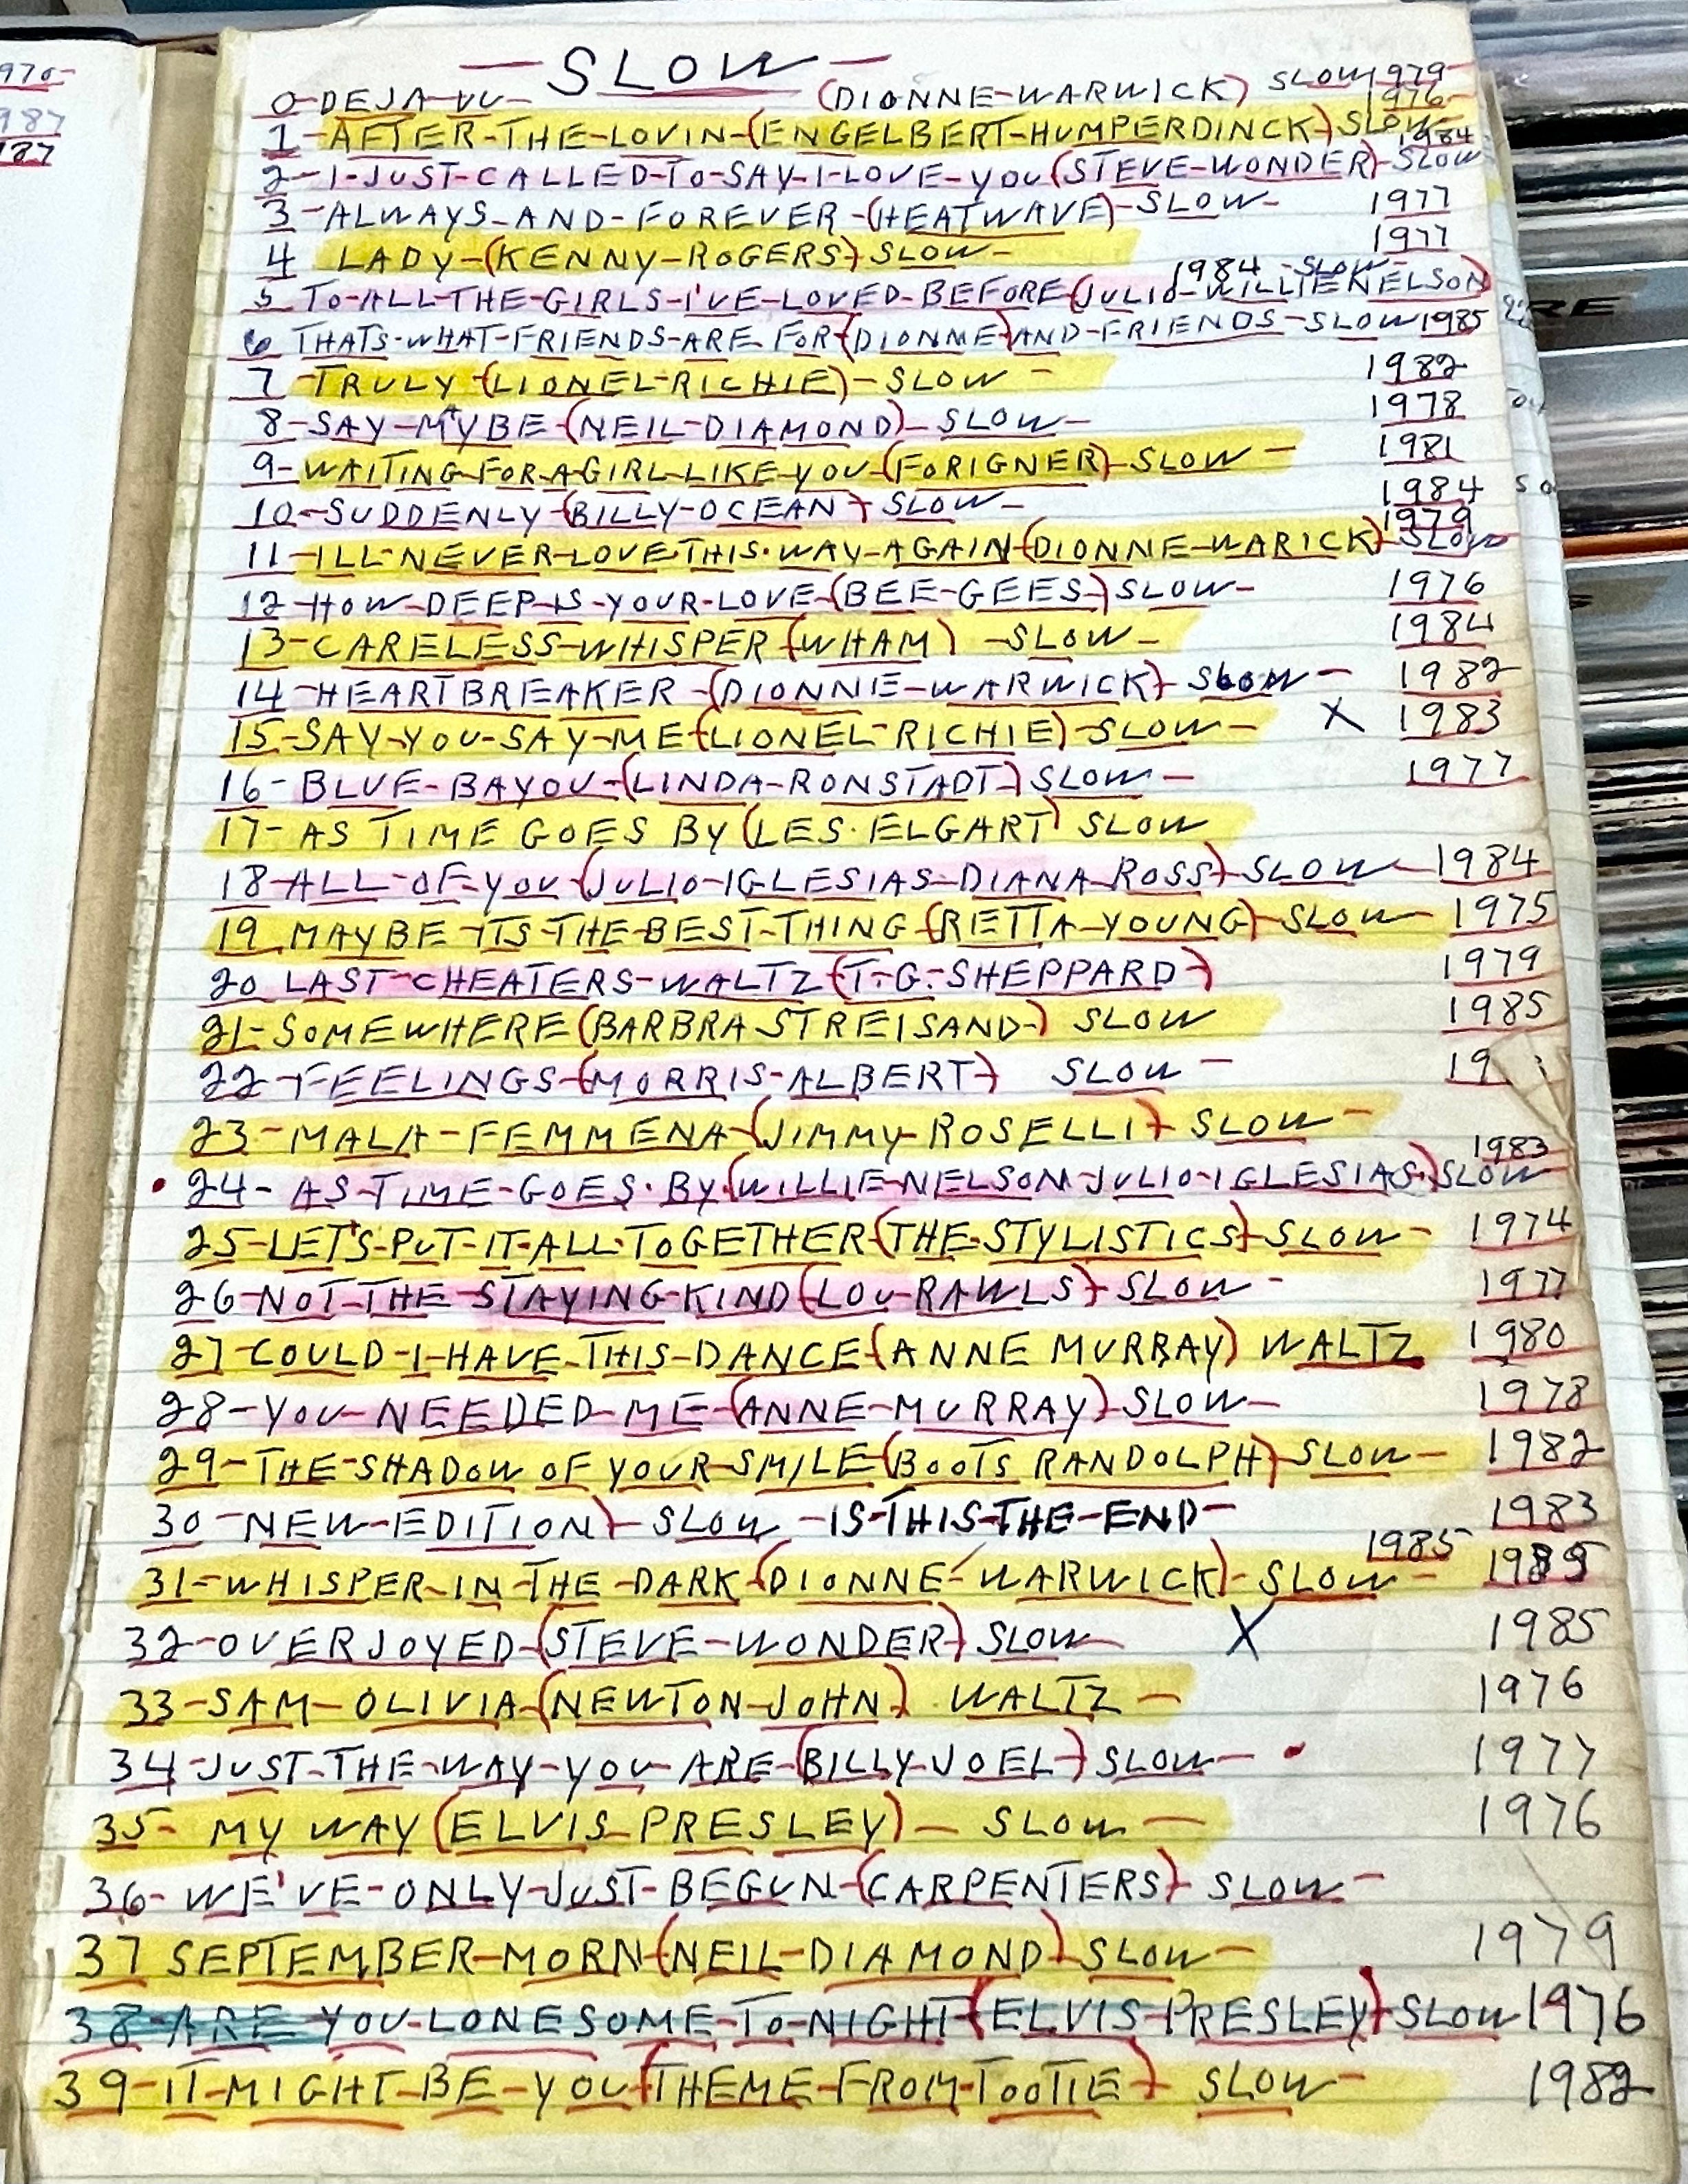 970-
987
187
— SLOW —
0-DEJA-VU- (DIONNE-WARWICK) SLOW 1979
1-AFTER-THE-LOVIN-(ENGELBERT-HUMPERDINCK)-SLOW- 1976
2-I-JUST-CALLED-TO-SAY-I-LOVE-YOU(STEVE-WONDER)-SLOW 1984
3-ALWAYS-AND-FOREVER-(HEATWAVE)-SLOW- 1977
4 LADY-(KENNY-ROGERS)SLOW- 1977
5 TO-ALL-THE-GIRLS-I'VE-LOVED-BEFORE(JULIO-WILLIE NELSON) 1984-SLOW-
6 THATS-WHAT-FRIENDS-ARE-FOR(DIONNE)AND-FRIENDS-SLOW 1985
7-TRULY-(LIONEL-RICHIE)-SLOW - 1982
8-SAY-MAYBE-(NEIL-DIAMOND)-SLOW- 1978
9-WAITING-FOR-A-GIRL-LIKE-YOU-(FORIGNER)-SLOW- 1981
10-SUDDENLY-(BILLY-OCEAN)-SLOW- 1984
11-ILL-NEVER-LOVE-THIS-WAY-AGAIN-(DIONNE-WARICK)-SLOW 1979
12-HOW-DEEP-IS-YOUR-LOVE-(BEE-GEES)SLOW- 1976
13-CARELESS-WHISPER(WHAM) -SLOW- 1984
14-HEARTBREAKER-(DIONNE-WARWICK)-SLOW- 1982
15-SAY-YOU-SAY-ME(LIONEL-RICHIE)-SLOW- X 1983
16-BLUE-BAYOU-(LINDA-RONSTADT)SLOW- 1977
17-AS TIME GOES BY(LES.ELGART) SLOW
18-ALL-OF-YOU-(JULIO-IGLESIAS-DIANA-ROSS)-SLOW- 1984
19-MAYBE-ITS-THE-BEST-THING-(RETTA-YOUNG)-SLOW- 1975
20 LAST-CHEATERS-WALTZ(T.G.SHEPPARD) 1979
21-SOMEWHERE(BARBRA STREISAND-) SLOW 1985
22-FEELINGS-(MORRIS-ALBERT) SLOW- 19
23-MALA-FEMMENA-(JIMMY-ROSELLI)-SLOW-
24-AS-TIME-GOES.BY(WILLIE-NELSON-JULIO-IGLESIAS)SLOW 1983
25-LET'S-PUT-IT-ALL-TOGETHER(THE-STYLISTICS)-SLOW- 1974
26-NOT-THE-STAYING-KIND(LOU-RAWLS)-SLOW- 1977
27-COULD-I-HAVE-THIS-DANCE-(ANNE MURRAY) WALTZ 1980
28-YOU-NEEDED-ME-(ANNE-MURRAY)-SLOW- 1978
29-THE-SHADOW OF YOUR-SMILE(BOOTS RANDOLPH)-SLOW- 1982
30-NEW-EDITION)-SLOW-IS-THIS-THE-END- 1983
31-WHISPER-IN-THE-DARK-(DIONNE-WARWICK)-SLOW- 1985 1985
32-OVERJOYED-(STEVE-WONDER)SLOW- X 1985
33-SAM-OLIVIA-(NEWTON-JOHN) WALTZ- 1976
34-JUST-THE-WAY-YOU-ARE-(BILLY-JOEL)SLOW- 1977
35- MY WAY(ELVIS-PRESLEY)- SLOW- 1976
36-WE'VE-ONLY-JUST-BEGUN-(CARPENTERS)-SLOW-
37 SEPTEMBER-MORN-(NEIL-DIAMOND)-SLOW- 1979
38-ARE YOU-LONESOME-TO-NIGHT(ELVIS-PRESLEY)-SLOW 1976
39-IT-MIGHT-BE-YOU(THEME-FROM-TOOTIE)- SLOW- 1982